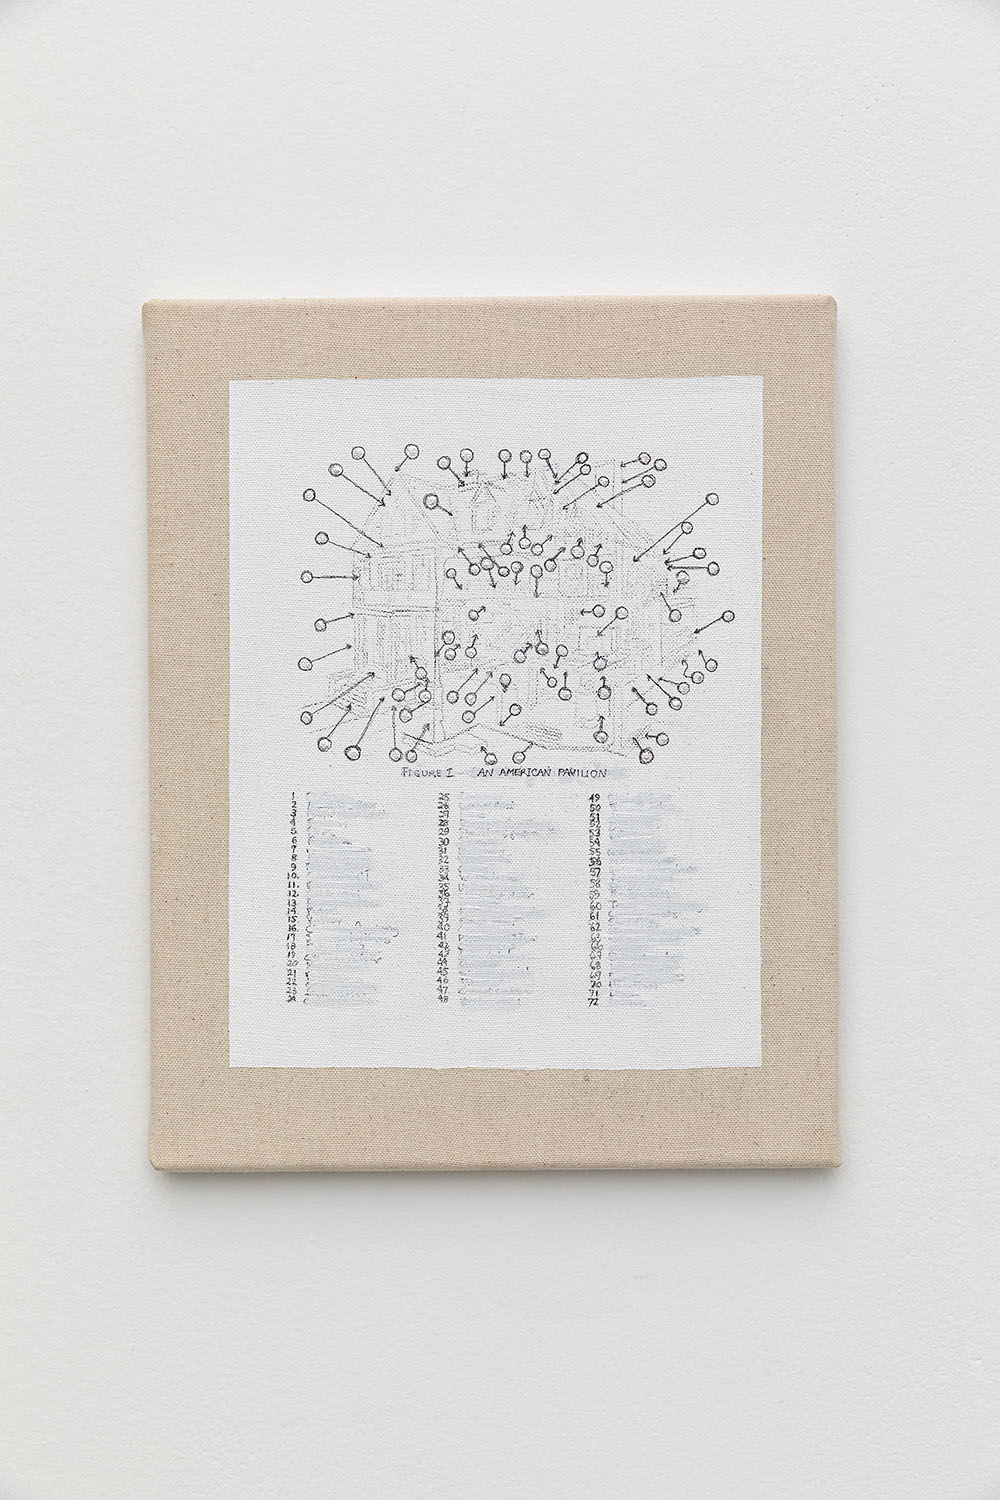 FIGURE I AN AMERICAN PAVILION
1
2
3
4
5
6
7
8
9
10.
11.
12.
13
14
15
16.
17
18
19
20
21
22
23
24
25
26
27
28
29
30
31
32
33
34
35
36
37
38
39
40
41
42
43
44
45
46
47
48
49
50
51
52
53
54
55
56
57
58
59
60
61
62
67
68
69
70
71
72